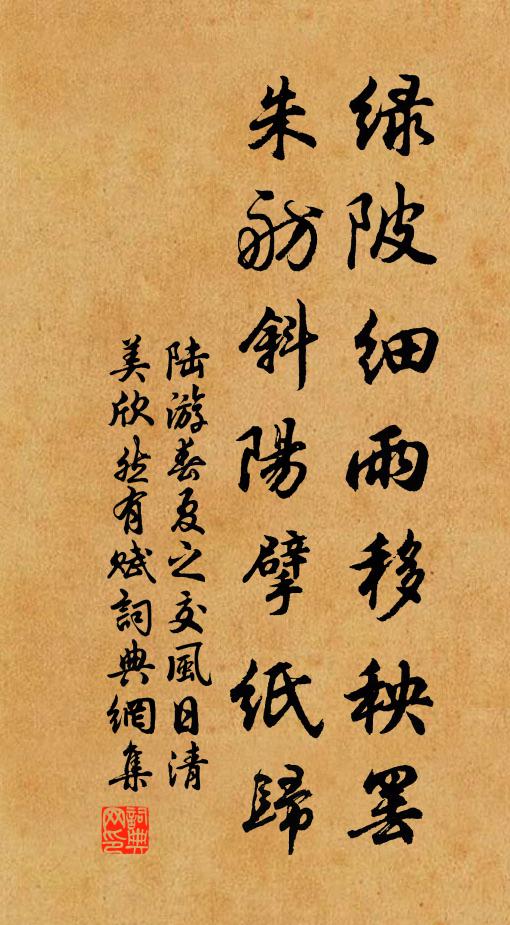 绿陂细雨移秧罢
朱舫斜陽擘纸歸
陆游春夏之交風日清
美欣然有赋詞典網集
詞典网印